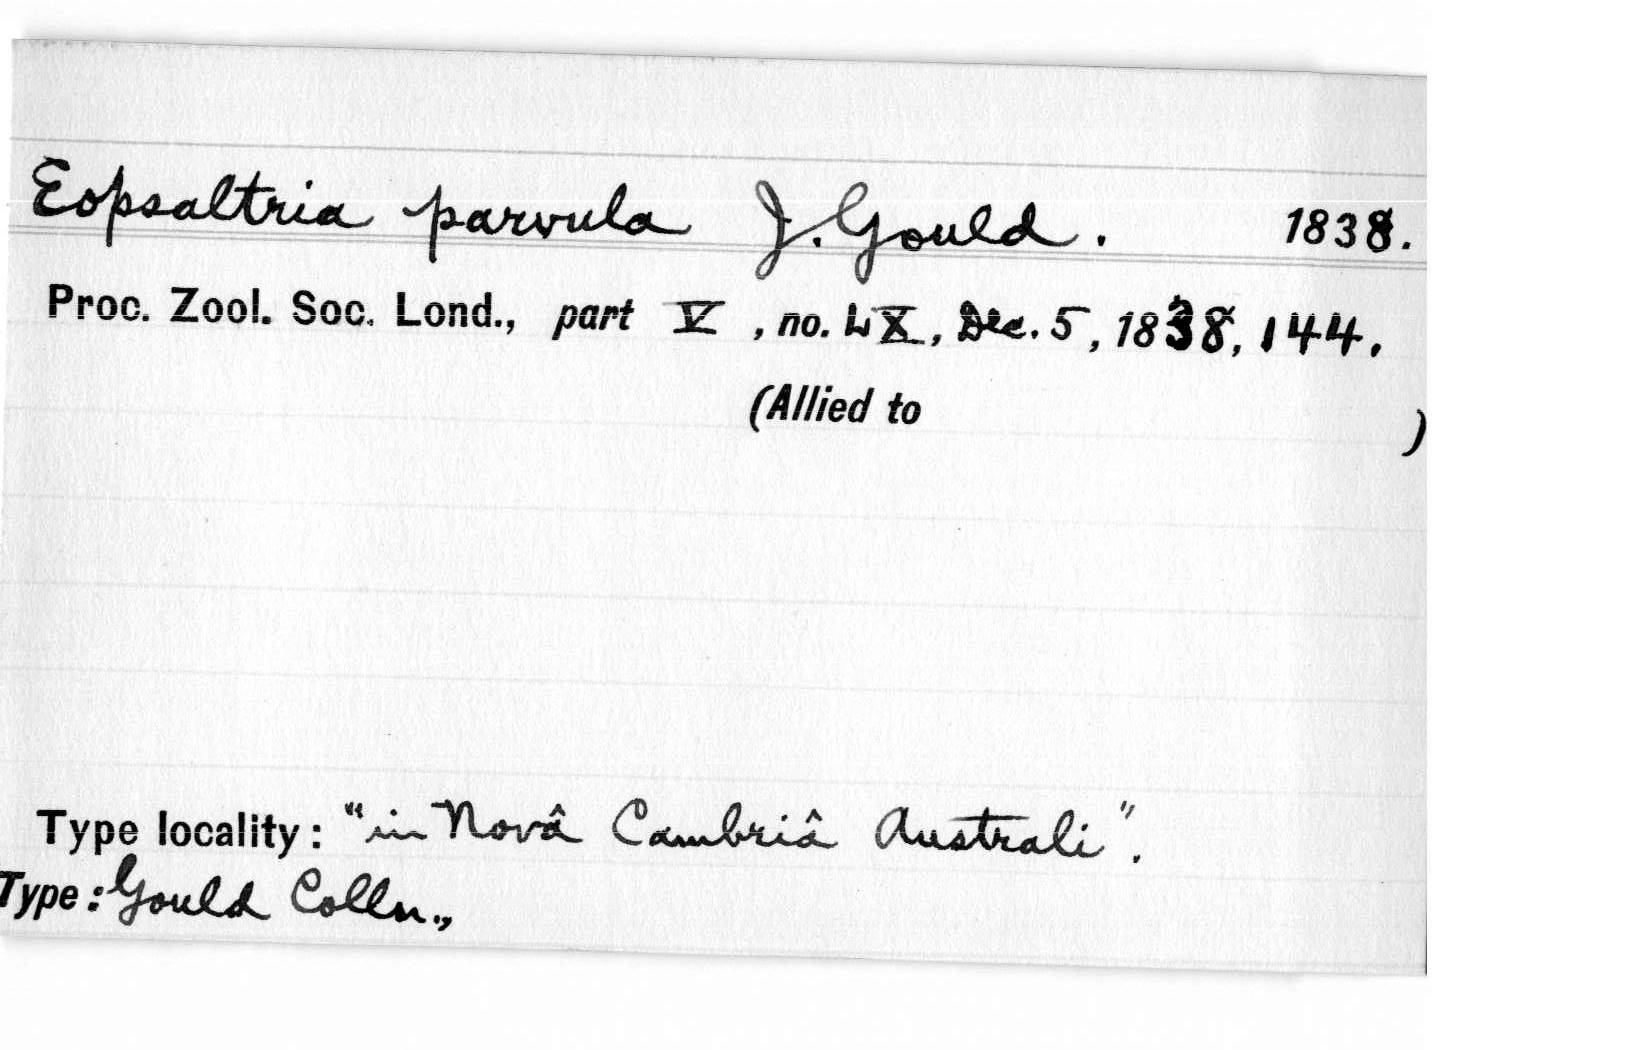 Eopsaltria parvula J. Gould. 1838.
Proc. Zool. Soc. Lond., part V, no. LX, Dec. 5, 1838, 144.
(Allied to )
Type locality: "in Novâ Cambriâ Australi".
Type: Gould Colln.,